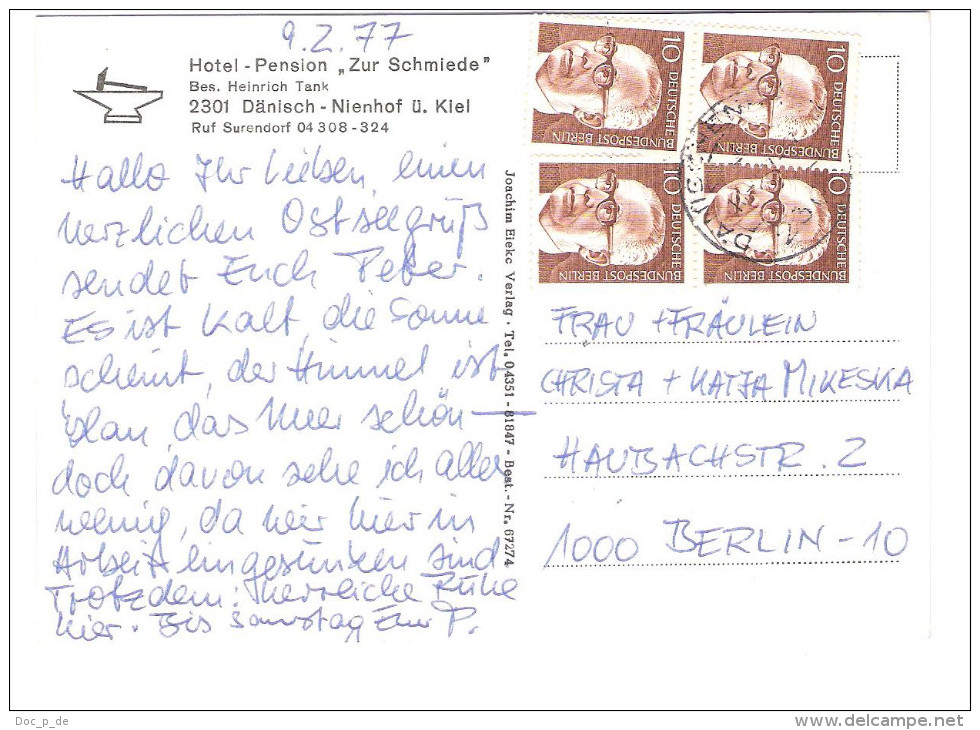 9.2.77
Hotel - Pension „Zur Schmiede"
Bes. Heinrich Tank
2301 Dänisch - Nienhof ü. Kiel
Ruf Surendorf 04 308 - 324
Hallo Ihr Lieben, einen
herzlichen Ostseegruß
sendet Euch Peter.
Es ist kalt, die Sonne
scheint, der Himmel ist
blau, das Meer schön –
doch davon sehe ich aller
wenig, da wir hier in
Arbeit eingesunken sind
Trotzdem: herrliche Ruhe
hier. Bis Samstag Euer P.
Joachim Eiekc Verlag · Tel. 04351 - 81847 - Best. - Nr. 67274
10 DEUTSCHE BUNDESPOST BERLIN
10 DEUTSCHE BUNDESPOST BERLIN
10 DEUTSCHE BUNDESPOST BERLIN
10 DEUTSCHE BUNDESPOST BERLIN
FRAU + FRÄULEIN
CHRISTA + KATJA MIKESKA
HAUBACHSTR. 2
1000 BERLIN - 10
Doc_p_de
www.delcampe.net